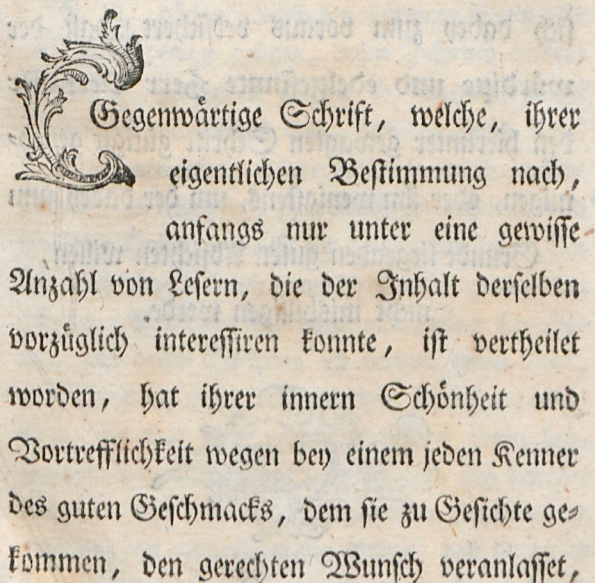 Gegenwärtige Schrift, welche, ihrer
eigentlichen Bestimmung nach,
anfangs nur unter eine gewisse
Anzahl von Lesern, die der Inhalt derselben
vorzüglich interessiren konnte, ist vertheilet
worden, hat ihrer innern Schönheit und
Vortrefflichkeit wegen bey einem jeden Kenner
des guten Geschmacks, dem sie zu Gesichte ge-
kommen, den gerechten Wunsch veranlasset,